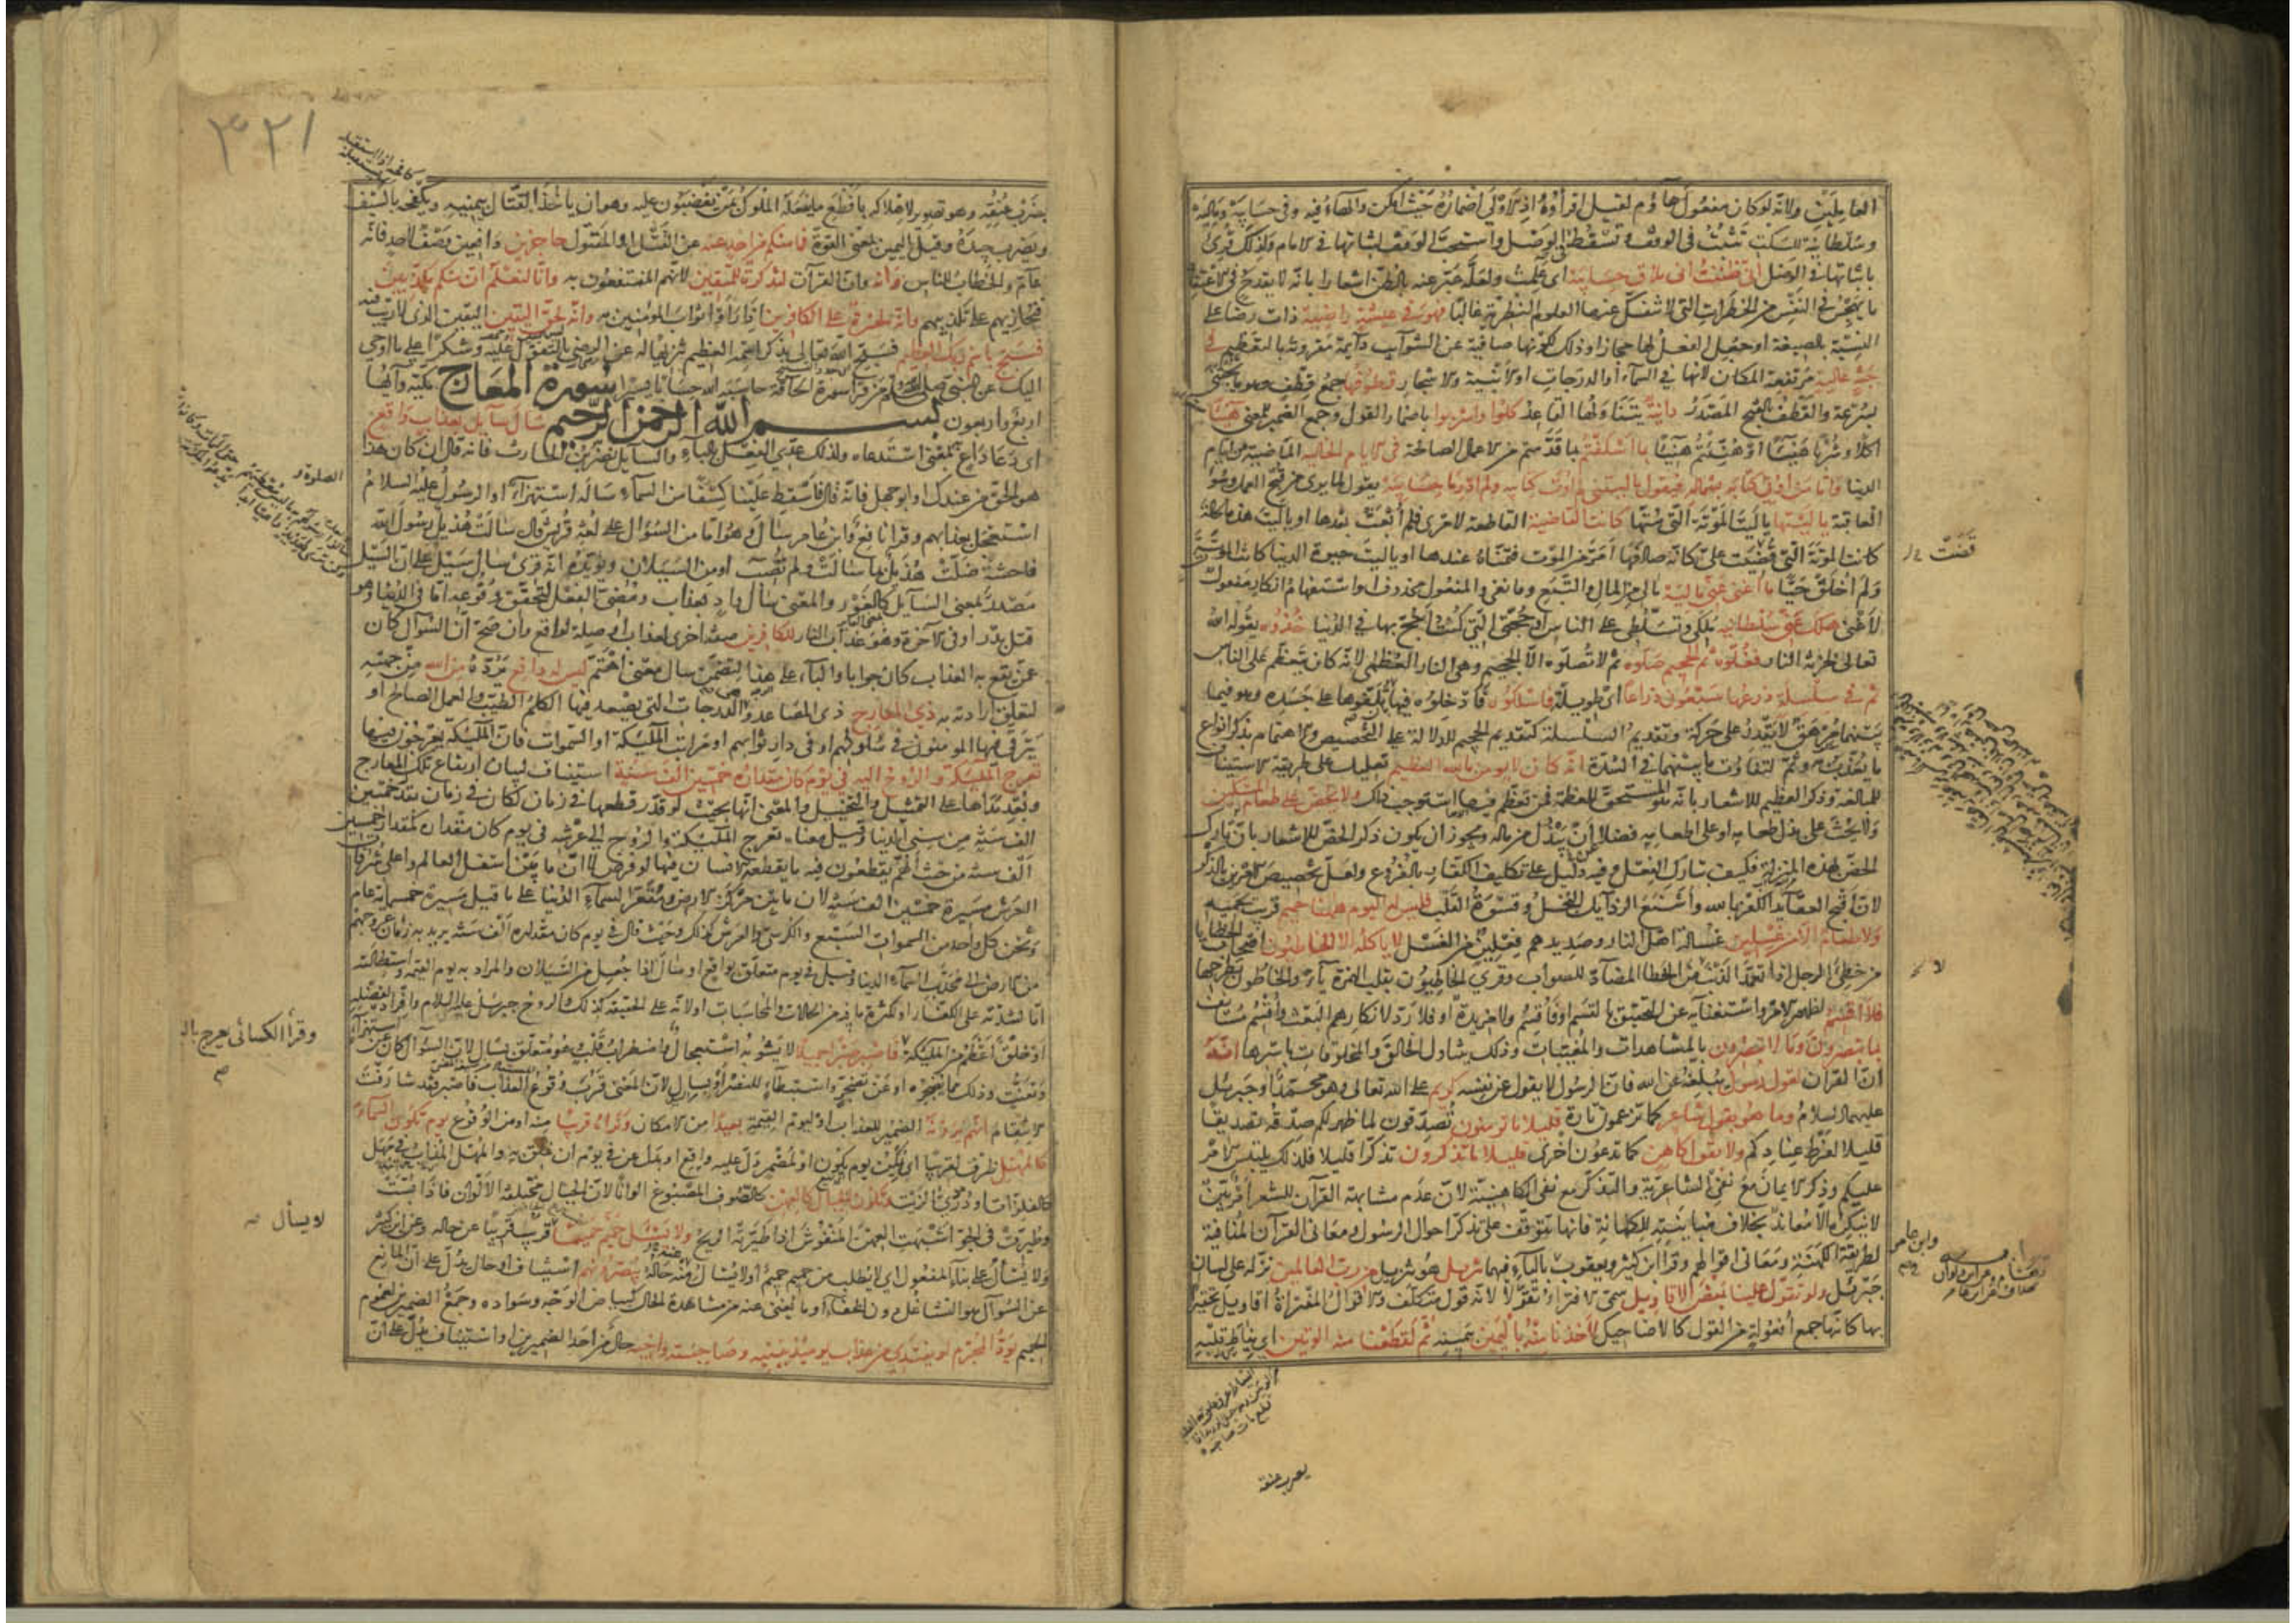 العاملين ولانه لو كان مفعول هاؤم لقيل اقرأوه اذ الاولى اضماره حيث امكن والهاء فيه وفى حسابيه وماليه
وسلطانيه للسكت تثبت فى الوقف وتسقط فى الوصل واستحب الوقف لثباتها فى الامام ولذلك قرئ
باثباتها فى الوصل انى ظننت انى ملاق حسابيه اى علمت ولعله عبر عنه بالظن اشعارا بانه لا يقدح فى الاعتقاد
ما يهجس فى النفس من الخطرات التى لا تنفك عنها العلوم النظرية غالبا فهو فى عيشة راضية ذات رضا على
النسبة بالصيغة او جعل الفعل لها مجازا وذلك لكونها صافية عن الشوائب دائمة مقرونة بالتعظيم فى
جنة عالية مرتفعة المكان لانها فى السماء او الدرجات او الابنية والاشجار قطوفها جمع قطف وهو ما يجتنى
بسرعة والقطف بالفتح المصدر دانية يتناولها القاعد كلوا واشربوا باضمار القول وجمع الضمير للمعنى هنيئا
اكلا وشربا هنيئا او هنئتم هنيئا بما اسلفتم بما قدمتم من الاعمال الصالحة فى الايام الخالية الماضية من ايام
الدنيا واما من اوتى كتابه بشماله فيقول ياليتنى لم اوت كتابيه ولم ادر ما حسابيه يقول لما يرى من قبح العمل وسوء
العاقبة ياليتها ياليت الموتة التى متها كانت القاضية القاطعة لامرى فلم ابعث بعدها او ياليت هذه الحالة
كانت الموتة التى قضيت على كانه صادفها امر من الموت فتمناه عندها او ياليت حيوة الدنيا كانت الموتة
ولم اخلق حيا ما اغنى عنى ماليه مالى من المال والتبع وما نفى والمفعول محذوف او استفهام انكار مفعول
لاغنى هلك عنى سلطانيه ملكى وتسلطى على الناس او حجتى التى كنت احتج بها فى الدنيا خذوه يقوله الله
تعالى لخزنة النار فغلوه ثم الجحيم صلوه ثم لا تصلوه الا الجحيم وهى النار العظمى لانه كان يتعظم على الناس
ثم فى سلسلة ذرعها سبعون ذراعا اى طويلة فاسلكوه فادخلوه فيها بان تلفوها على جسده وهو فيما
بينها مرهق لا يقدر على حركة وتقديم السلسلة كتقديم الجحيم للدلالة على التخصيص والاهتمام بذكر انواع
ما يعذب به وثم لتفاوت ما بينهما فى الشدة انه كان لا يؤمن بالله العظيم تعليل على طريقة الاستيناف
للمبالغة وذكر العظيم للاشعار بانه هو المستحق للعظمة فمن تعظم فيها استوجب ذلك ولا يحض على طعام المسكين
ولا يحث على بذل طعامه او على اطعامه فضلا ان يبذل من ماله ويجوز ان يكون ذكر الحض للاشعار بان تارك
الحض بهذه المنزلة فكيف بتارك الفعل وفيه دليل على تكليف الكفار بالفروع ولعل تخصيص الامرين بالذكر
لان اقبح العقائد الكفر بالله واشنع الرذائل البخل وقسوة القلب فليس له اليوم ههنا حميم قريب يحميه
ولا طعام الا من غسلين غسالة اهل النار وصديدهم فعلين من الغسل لا ياكله الا الخاطئون اصحاب الخطايا
من خطئ الرجل اذا تعمد الذنب من الخطا المضاد للصواب وقرئ الخاطيون بقلب الهمزة ياء والخاطون بطرحها
فلا اقسم لظهور الامر واستغنائه عن التحقيق بالقسم او فاقسم ولا مزيدة او فلا رد لانكارهم البعث واقسم مستانف
بما تبصرون وما لا تبصرون بالمشاهدات والمغيبات وذلك يتناول الخالق والمخلوقات باسرها انه
ان القران لقول رسول يبلغه عن الله فان الرسول لا يقول عن نفسه كريم على الله تعالى وهو محمد او جبرئيل
عليهما السلام وما هو بقول شاعر كما تزعمون تارة قليلا ما تؤمنون تصدقون لما ظهر لكم صدقه تصديقا
قليلا لفرط عنادكم ولا بقول كاهن كما تدعون اخرى قليلا ما تذكرون تذكرا قليلا فلذلك يلتبس الامر
عليكم وذكر الايمان مع نفى الشاعرية والتذكر مع نفى الكاهنية لان عدم مشابهة القرآن للشعر امر بين
لا ينكره الا معاند بخلاف مباينته للكهانة فانها تتوقف على تذكر احوال الرسول ومعانى القرآن المنافية
لطريقة الكهنة ومعانى اقوالهم وقرا ابن كثير ويعقوب بالياء فيهما تنزيل هو تنزيل من رب العالمين نزله على لسان
جبرئيل ولو تقول علينا بعض الاقاويل سمى الافتراء تقولا لانه قول متكلف والاقوال المفتراة اقاويل تحقيرا
بها كانها جمع افعولة من القول كالاضاحيك لاخذنا منه باليمين بيمينه ثم لقطعنا منه الوتين اى نياط قلبه
قضت
لا
وابن عامر
يضرب عنقه
٣٢١
بضرب عنقه وهو تصوير لاهلاكه بافظع ما يفعله الملوك بمن يغضبون عليه وهو ان ياخذ القتال بيمينه ويكفحه بالسيف
ويضرب جيده وقيل اليمين بمعنى القوة فما منكم من احد عنه عن القتل او المقتول حاجزين دافعين وصف لاحد فانه
عام والخطاب للناس وانه وان القرآن لتذكرة للمتقين لانهم المنتفعون به وانا لنعلم ان منكم مكذبين
فنجازيهم على تكذيبهم وانه لحسرة على الكافرين اذا راوا ثواب المؤمنين به وانه لحق اليقين اليقين الذى لا ريب فيه
فسبح باسم ربك العظيم فسبح الله تعالى بذكر اسمه العظيم تنزيها له عن الرضى بالتقول عليه وشكرا على ما اوحى
اليك عن النبى صلى الله عليه وسلم من قرا سورة الحاقة حاسبه الله حسابا يسيرا سورة المعارج مكية وآيها
اربع واربعون بسم الله الرحمن الرحيم سال سائل بعذاب واقع
اى دعا داع به بمعنى استدعاه ولذلك عدى الفعل بالباء والسائل نضر بن الحارث فانه قال ان كان هذا
هو الحق من عندك او ابو جهل فانه قال فاسقط علينا كسفا من السماء ساله استهزاء او الرسول عليه السلام
استعجل بعذابهم وقرا نافع وابن عامر سال وهو اما من السؤال على لغة قريش قال سالت هذيل رسول الله
فاحشة ضلت هذيل بما سالت ولم تصب او من السيلان ويؤيده انه قرئ سال سيل على ان السيل
مصدر بمعنى السائل كالغور والمعنى سال واد بعذاب ومضى الفعل لتحقق وقوعه اما فى الدنيا وهو
قتل بدر او فى الآخرة وهو عذاب النار للكافرين صفة اخرى لعذاب او صلة لواقع وان صح ان السؤال كان
عمن يقع به العذاب كان جوابا والباء على هذا لتضمن سال معنى اهتم ليس له دافع يرده من الله من جهته
لتعلق ارادته به ذى المعارج ذى المصاعد وهى الدرجات التى يصعد فيها الكلم الطيب والعمل الصالح او
يترقى فيها المؤمنون فى سلوكهم او فى دار ثوابهم او مراتب الملئكة او السموات فان الملئكة يعرجون فيها
تعرج الملئكة والروح اليه فى يوم كان مقداره خمسين الف سنة استيناف لبيان ارتفاع تلك المعارج
وبعد مداها على التمثيل والتخييل والمعنى انها بحيث لو قدر قطعها فى زمان لكان فى زمان يقدر بخمسين
الف سنة من سنى الدنيا وقيل معناه تعرج الملئكة والروح الى عرشه فى يوم كان مقداره كمقدار خمسين
الف سنة من حيث انهم يقطعون فيه ما يقطعه الانسان فيها لو فرض لا ان ما بين اسفل العالم واعلى شرفات
العرش مسيرة خمسين الف سنة لان ما بين مركز الارض ومقعر السماء الدنيا على ما قيل مسيرة خمسمائة عام
وثخن كل واحد من السموات السبع والكرسى والعرش كذلك وحيث قال فى يوم كان مقداره الف سنة يريد به زمان عروجهم
من الارض الى محدب السماء الدنيا وقيل فى يوم متعلق بواقع او سال اذا جعل من السيلان والمراد به يوم القيمة واستطالته
اما لشدته على الكفار او لكثرة ما فيه من الحالات والمحاسبات او لانه على الحقيقة كذلك والروح جبرئيل عليه السلام وافراده لفضله
او خلق اعظم من الملئكة فاصبر صبرا جميلا لا يشوبه استعجال واضطراب قلب وهو متعلق بسال لان السؤال كان عن استهزاء
وتعنت وذلك مما يضجره او عن تضجر واستبطاء للنصر او بسال لان المعنى قرب وقوع العذاب فاصبر فقد شارفت
الانتقام انهم يرونه الضمير للعذاب او ليوم القيمة بعيدا من الامكان ونراه قريبا منه او من الوقوع يوم تكون السماء
كالمهل ظرف لقريبا اى يمكن يوم تكون او لمضمر دل عليه واقع او بدل عن فى يوم ان علق به والمهل المذاب فى مهل
كالفلزات او دردى الزيت وتكون الجبال كالعهن كالصوف المصبوغ الوانا لان الجبال مختلفة الالوان فاذا بست
وطيرت فى الجو اشبهت العهن المنفوش اذا طيرته الريح ولا يسئل حميم حميما قريب قريبا عن حاله وعن ابن كثير
ولا يسأل على بناء المفعول اى لا يطلب من حميم حميم او لا يسأل منه حاله يبصرونهم استيناف او حال يدل على ان المانع
عن السؤال هو التشاغل دون الخفاء او ما يغنى عنه من مشاهدة الحال كبياض الوجه وسواده وجمع الضميرين لعموم
الحميم يود المجرم لو يفتدى من عذاب يومئذ ببنيه وصاحبته واخيه حال من احد الضميرين او استيناف يدل على ان
الصلوة و
وقرأ الكسائى يعرج باليا
لا يسأل